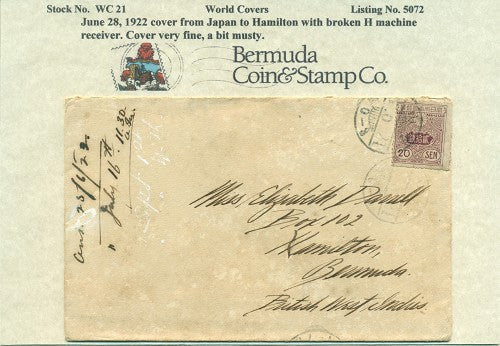 Stock No. WC 21 World Covers Listing No. 5072
June 28, 1922 cover from Japan to Hamilton with broken H machine
receiver. Cover very fine, a bit musty.
Bermuda
Coin&Stamp Co.
July 16th 11.30
20 SEN
Miss Elizabeth Darrell
Box 102
Hamilton,
Bermuda.
British West Indies